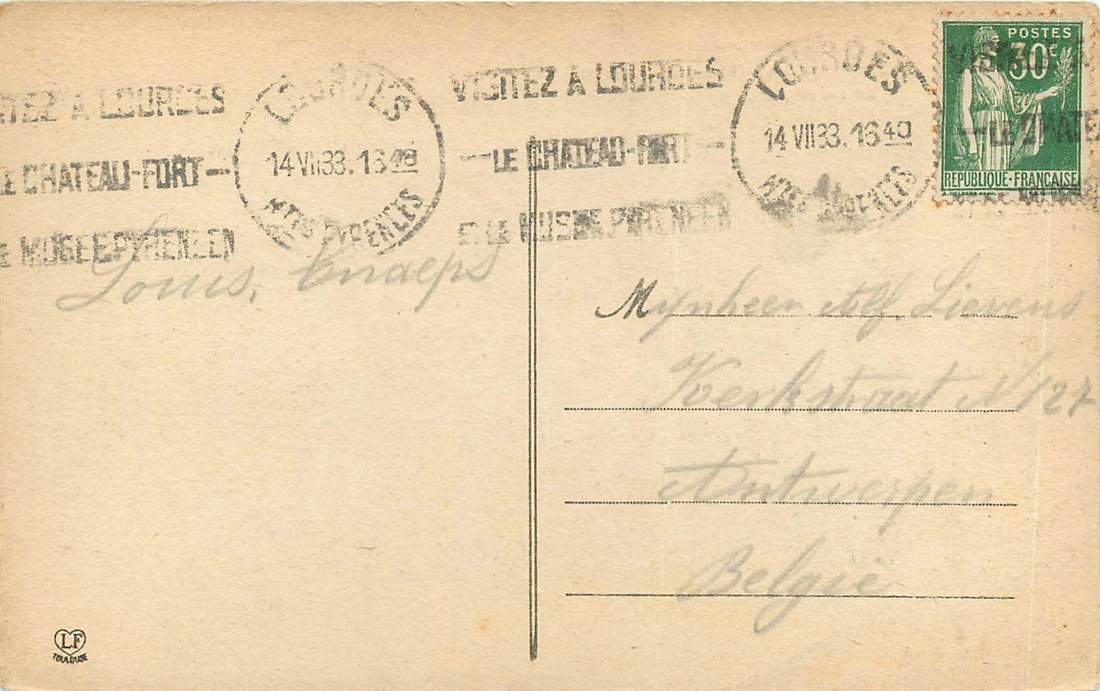 VISITEZ A LOURDES
LE CHATEAU-FORT
ET LE MUSEE PYRENEEN
LOURDES
14 VII 33. 1640
HTES PYRENEES
VISITEZ A LOURDES
LE CHATEAU-FORT
ET LE MUSEE PYRENEEN
LOURDES
14 VII 33. 1640
HTES PYRENEES
POSTES
30c
REPUBLIQUE-FRANÇAISE
Louis,
Mynheer Alf. Lievens
Kerkstraat N 127
Antwerpen
België
LF
TOULOUSE